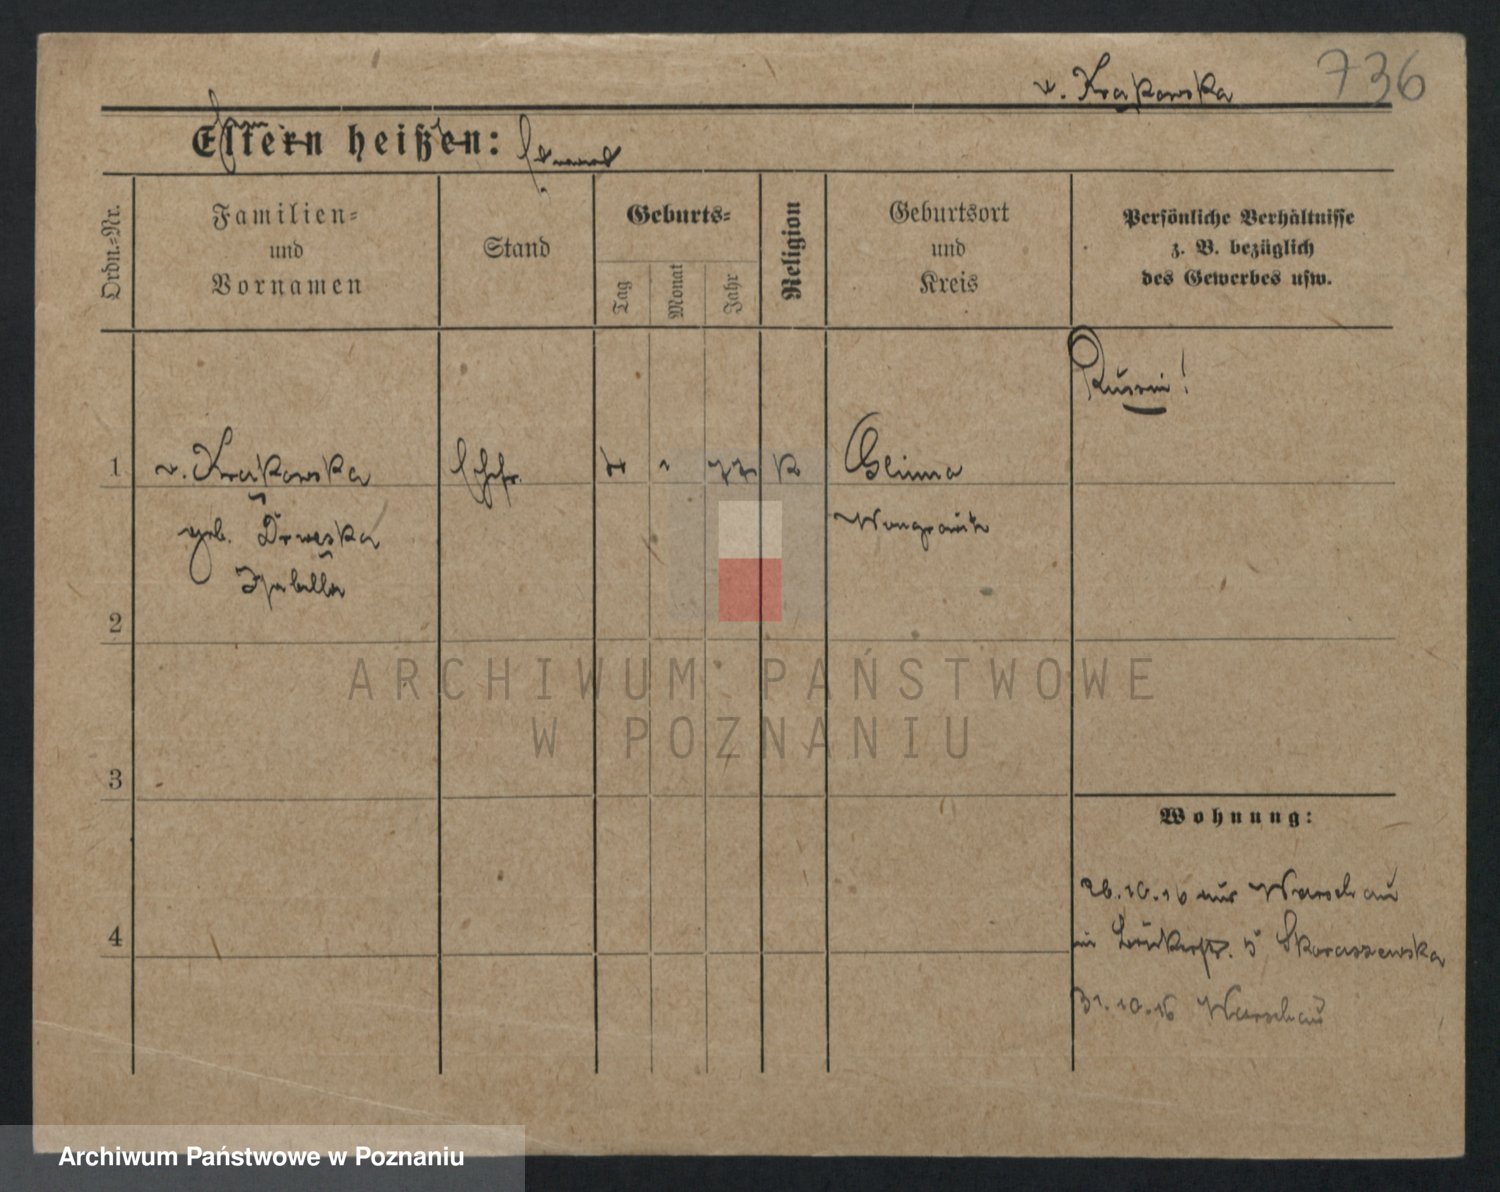 v. Krąkowska 736
Eltern heißen:
Ordn.-Nr.
Familien-
und
Vornamen
Stand
Geburts-
Tag
Monat
Jahr
Religion
Geburtsort
und
Kreis
Persönliche Verhältnisse
z. B. bezüglich
des Gewerbes usw.
Russin!
1 v. Krąkowska Ehefr. k Glinno
geb. Drwęska Wongrowitz
Isabella
2
3
4
Wohnung:
26.10.16 aus Warschau
in Bäckerstr. 5 Skoraszewska
31.10.16 Warschau
ARCHIWUM PAŃSTWOWE
W POZNANIU
Archiwum Państwowe w Poznaniu